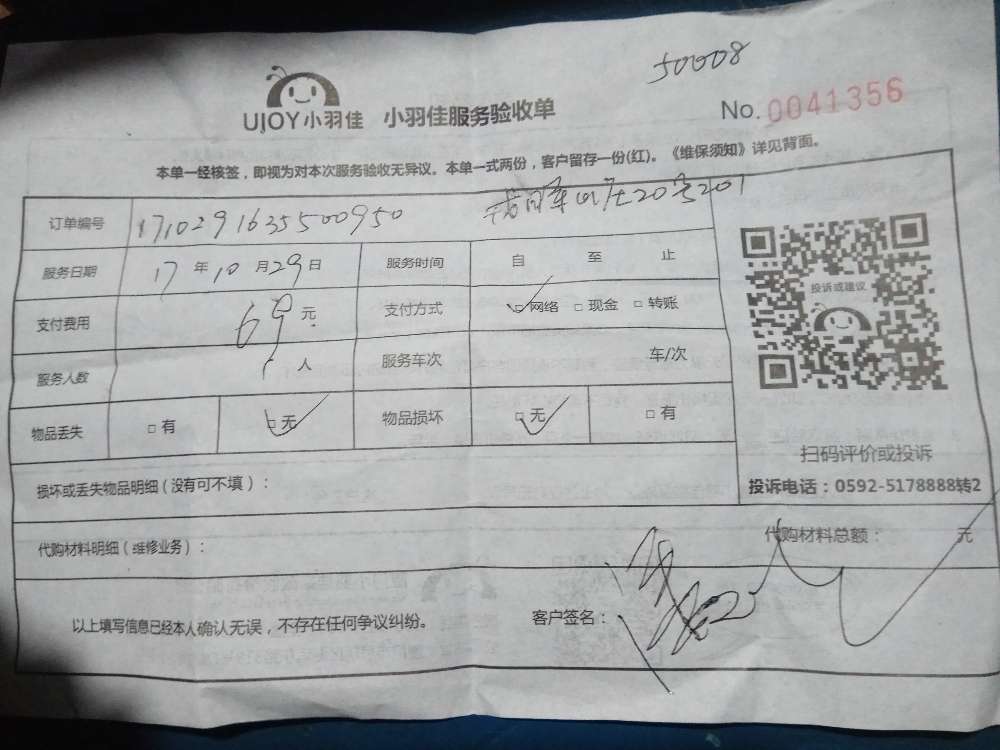 50008
UJOY小羽佳 小羽佳服务验收单 No. 0041356
本单一经核签，即视为对本次服务验收无异议。本单一式两份，客户留存一份(红)。《维保须知》详见背面。
订单编号 171029163550095​0 20号201
服务日期 17 年 10 月 29 日 服务时间 自 至 止
投诉或建议
支付费用 69 元 支付方式 □ 网络 □ 现金 □ 转账
服务人数 1 人 服务车次 车/次
物品丢失 □ 有 □ 无 物品损坏 □ 无 □ 有
扫码评价或投诉
损坏或丢失物品明细（没有可不填）： 投诉电话：0592-5178888转2
代购材料明细（维修业务）： 代购材料总额： 元
以上填写信息已经本人确认无误，不存在任何争议纠纷。 客户签名：